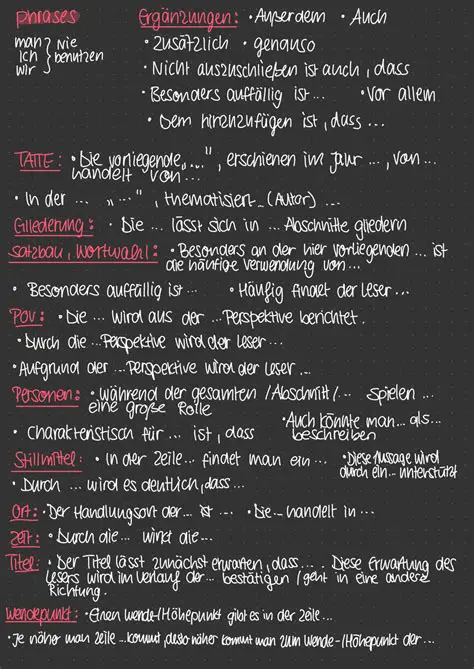 phrases
man
ich
wir
nie
benutzen
Ergänzungen: • Außerdem • Auch
• zusätzlich • genauso
• Nicht auszuschließen ist auch, dass
• Besonders auffällig ist ... • Vor allem
• Dem hinzuzufügen ist, dass ...
TATTE: • Die vorliegende „...", erschienen im Jahr ..., von ...
handelt von...
• In der ... „...", thematisiert ... (Autor) ...
Gliederung: • Die ... lässt sich in ... Abschnitte gliedern
Satzbau, Wortwahl: • Besonders an der hier vorliegenden ... ist
die häufige Verwendung von...
• Besonders auffällig ist ... • Häufig findet der Leser ...
POV: • Die ... wird aus der ... Perspektive berichtet.
• Durch die ... Perspektive wird der Leser ...
• Aufgrund der ... Perspektive wird der Leser ...
Personen: • während der gesamten /Abschnitt/... spielen ...
eine große Rolle
• Charakteristisch für ... ist, dass
• Auch könnte man ... als ...
beschreiben
Stillmittel: • In der Zeile ... findet man ein ...
• Diese Aussage wird
durch ein ... unterstützt
• Durch ... wird es deutlich, dass ...
Ort: • Der Handlungsort der ... ist ... • Die ... handelt in ...
Zeit: • Durch die ... wirkt die ...
Titel: • Der Titel lässt zunächst erwarten, dass ... . Diese Erwartung des
Lesers wird im Verlauf der ... bestätigen / geht in eine andere
Richtung.
Wendepunkt: • Einen Wende-/Höhepunkt gibt es in der Zeile ...
• Je näher man Zeile ... kommt, desto näher kommt man zum Wende-/Höhepunkt der ...